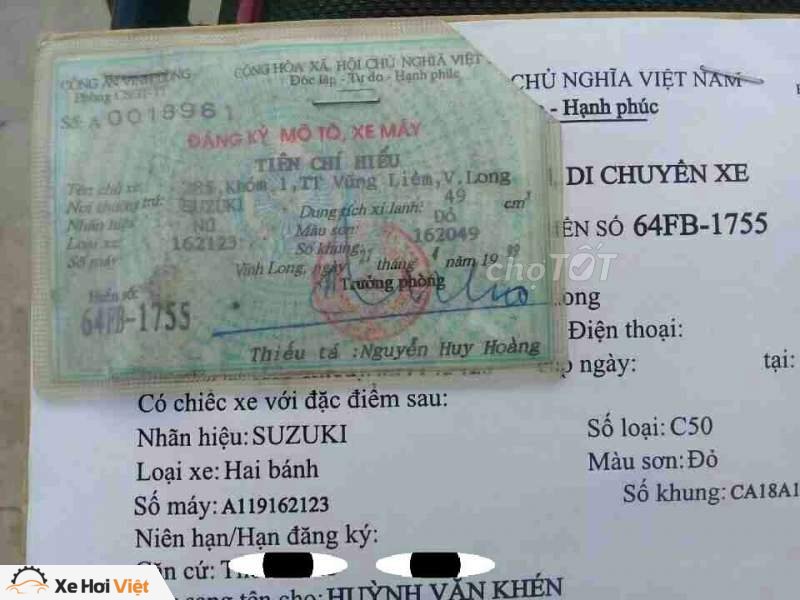 CÔNG AN VĨNH LONG
Phòng CSGT-TT
CỘNG HÒA XÃ HỘI CHỦ NGHĨA VIỆT
Độc lập - Tự do - Hạnh phúc
Số A 0018961
ĐĂNG KÝ MÔ TÔ, XE MÁY
TIÊN CHÍ HIẾU
Tên chủ xe: 285, Khóm 1, TT Vũng Liêm, V.Long
Nơi thường trú: SUZUKI Dung tích xi lanh: 49 cm³
Nhãn hiệu: Nữ Màu sơn: ĐỎ
Loại xe: 162123 Số khung: 162049
Số máy:
Vĩnh Long, ngày 21 tháng 4 năm 19
Trưởng phòng
Biển số:
64FB-1755
Thiếu tá : Nguyễn Huy Hoàng
CHỦ NGHĨA VIỆT NAM
- Hạnh phúc
DI CHUYỂN XE
SỐ 64FB-1755
chợTỐT
ong
Điện thoại:
ngày: tại:
Có chiếc xe với đặc điểm sau:
Nhãn hiệu: SUZUKI Số loại: C50
Loại xe: Hai bánh Màu sơn: Đỏ
Số máy: A119162123 Số khung: CA18A1
Niên hạn/Hạn đăng ký:
Căn cứ:
sang tên cho: HUỲNH VĂN KHÉN
Xe Hơi Việt